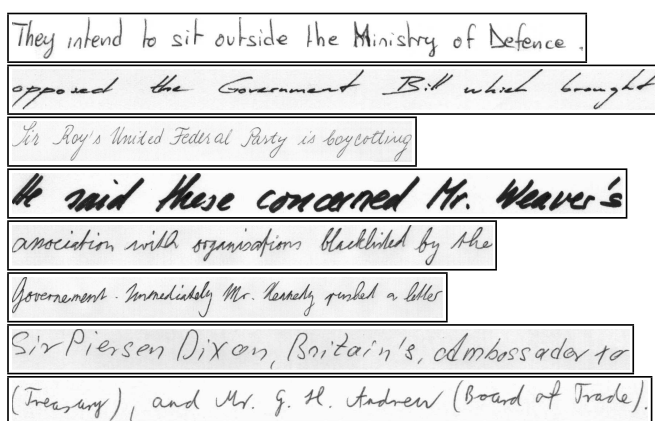 They intend to sit outside the Ministry of Defence .
opposed the Government Bill which brought
Sir Roy's United Federal Party is boycotting
He said these concerned Mr. Weaver's
association with organisations blacklisted by the
Governement . Immediately Mr. Kennedy rushed a letter
Sir Piersen Dixon, Britain's, Ambossador to
(Treasury), and Mr. G. H. Andrew (Board of Trade).